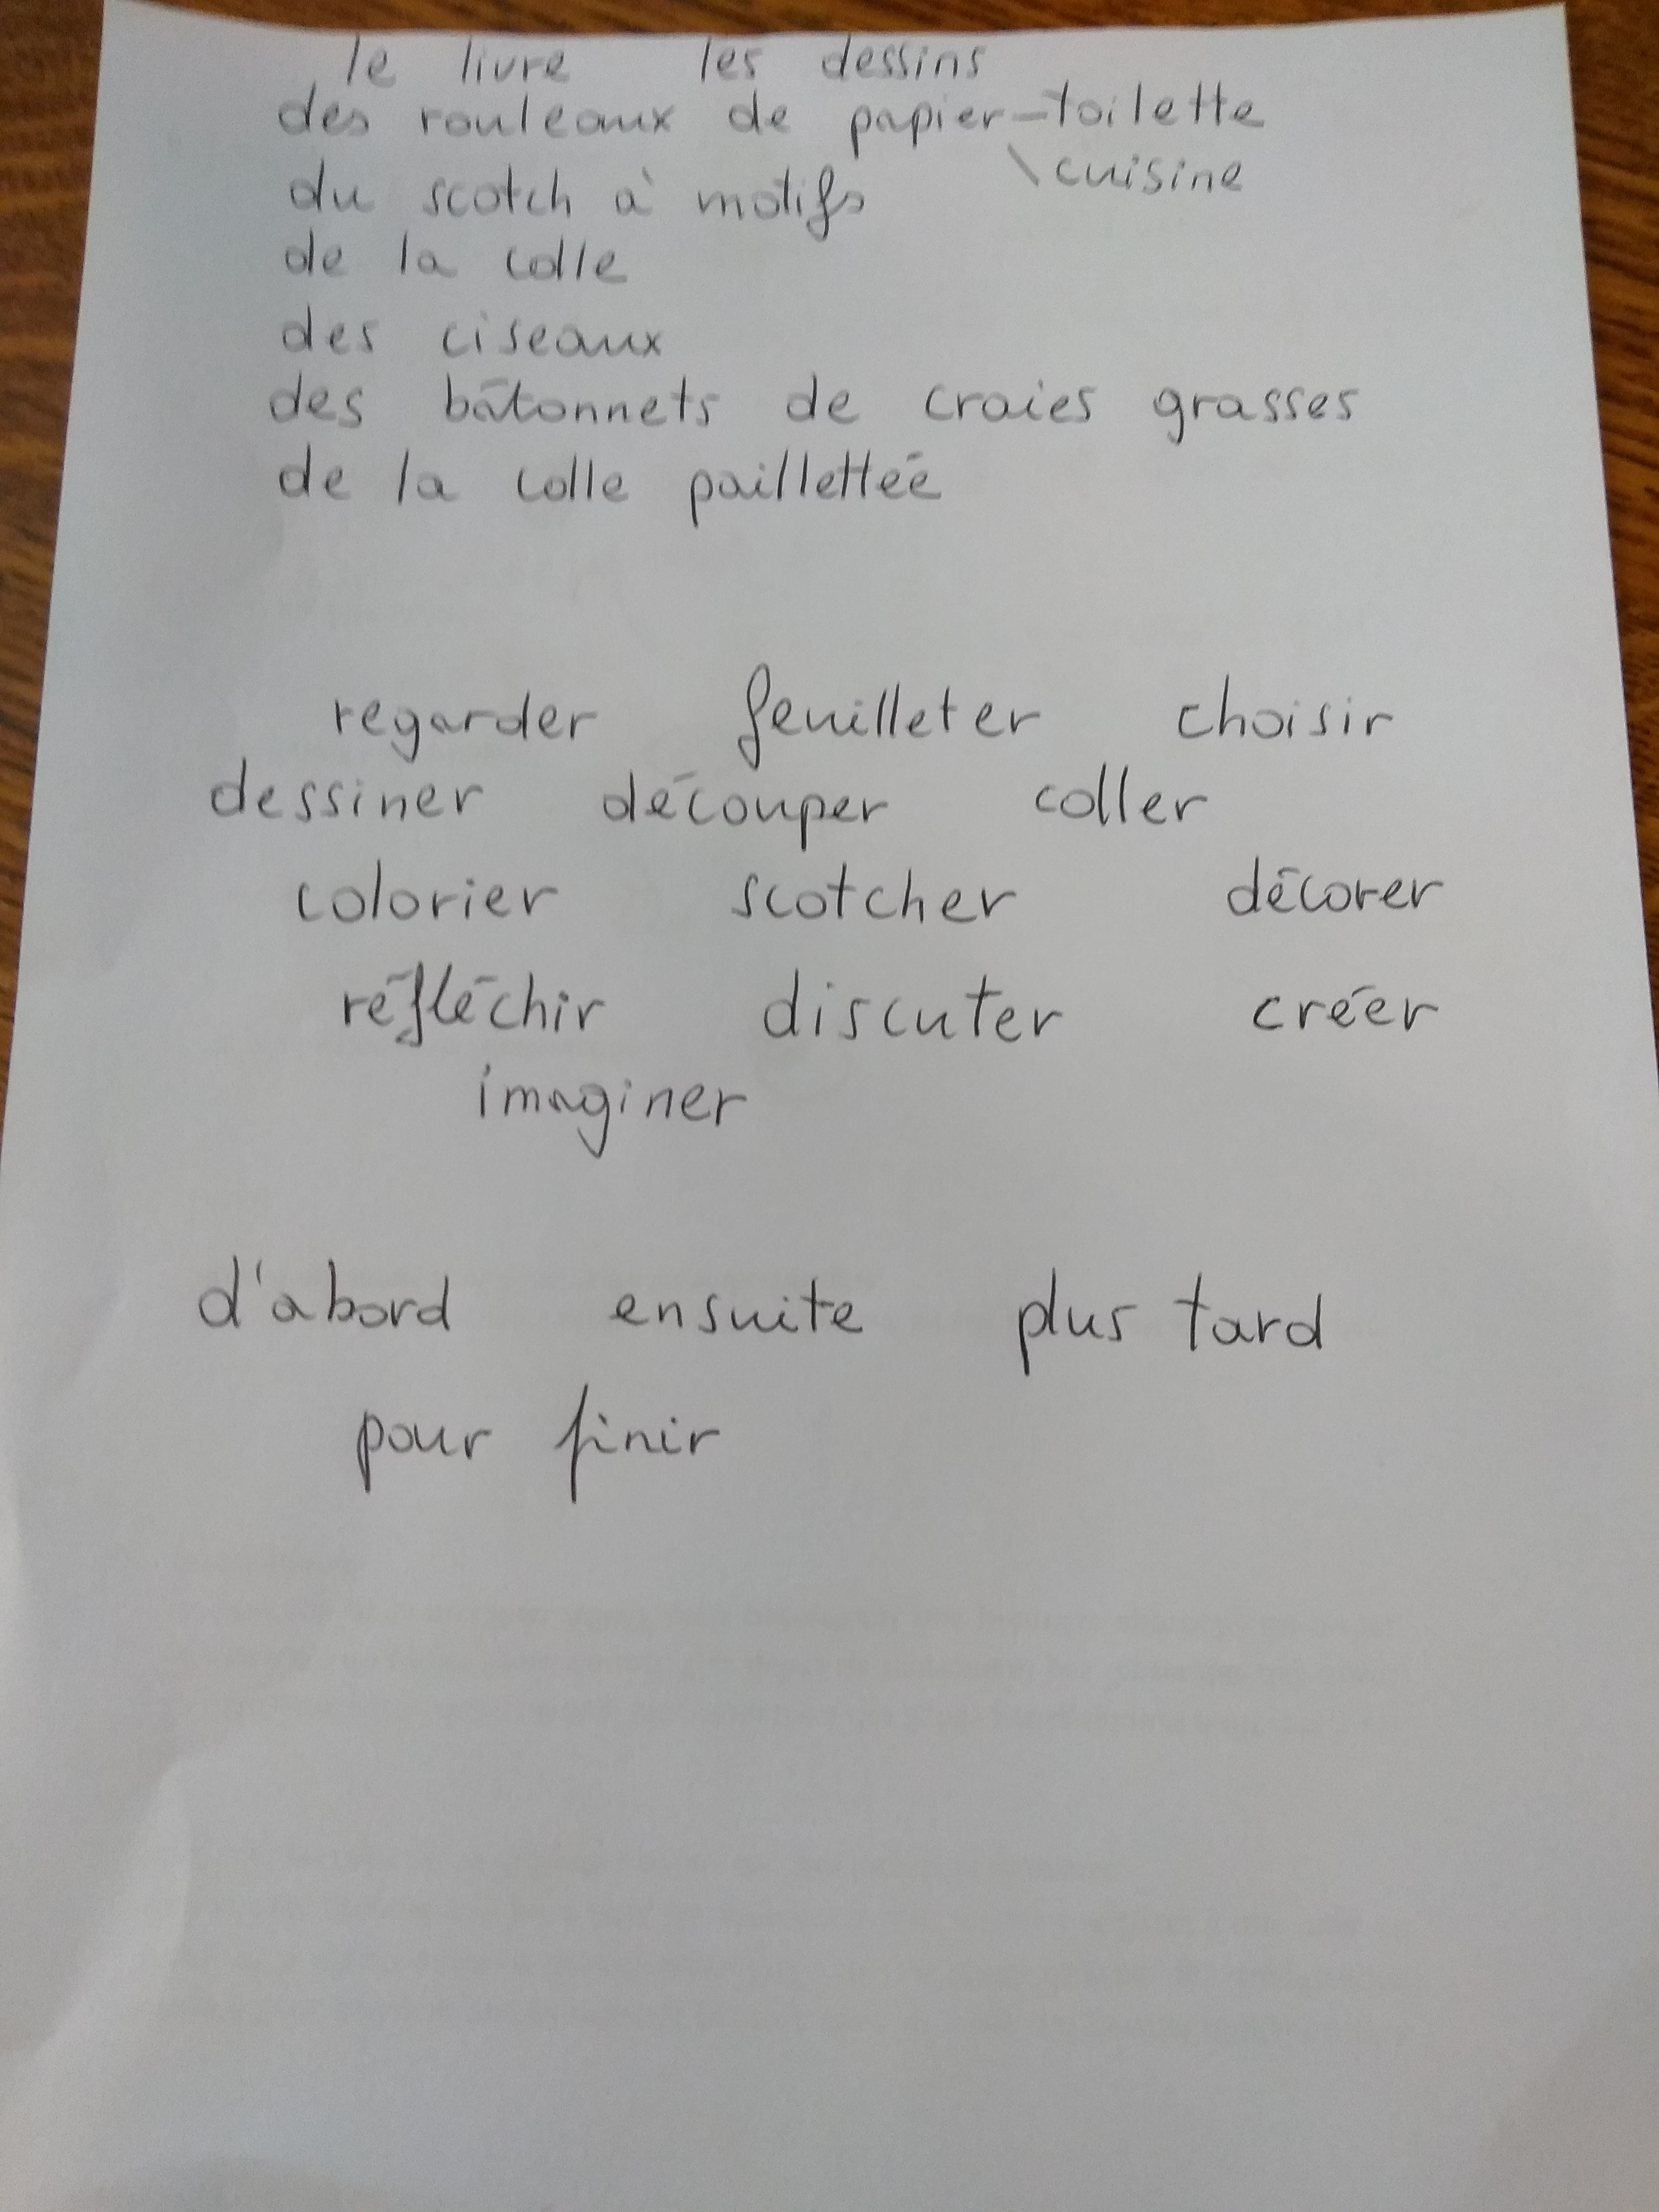 le livre les dessins
des rouleaux de papier-toilette
\cuisine
du scotch à motifs
de la colle
des ciseaux
des bâtonnets de craies grasses
de la colle paillettée
regarder feuilleter choisir
dessiner découper coller
colorier scotcher décorer
réfléchir discuter créer
imaginer
d'abord ensuite plus tard
pour finir